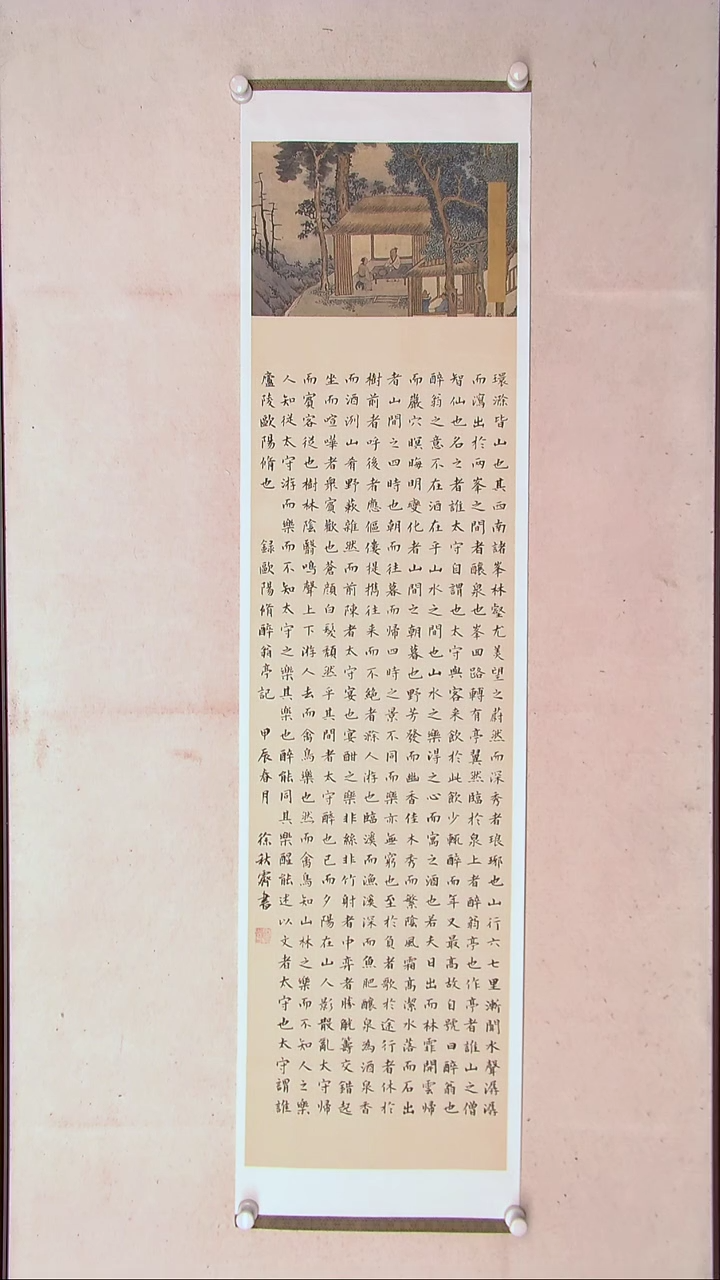 環滁皆山也其西南諸峯林壑尤美望之蔚然而深秀者琅琊也山行六七里漸聞水聲潺潺
而瀉出於兩峯之間者釀泉也峯回路轉有亭翼然臨於泉上者醉翁亭也作亭者誰山之僧
智仙也名之者誰太守自謂也太守與客来飲於此飲少輒醉而年又最高故自號曰醉翁也
醉翁之意不在酒在乎山水之間也山水之樂得之心而寓之酒也若夫日出而林霏開雲歸
而巖穴暝晦明變化者山間之朝暮也野芳發而幽香佳木秀而繁陰風霜高潔水落而石出
者山間之四時也朝而往暮而歸四時之景不同而樂亦無窮也至於負者歌於途行者休於
樹前者呼後者應傴僂提攜往来而不絶者滁人游也臨溪而漁溪深而魚肥釀泉為酒泉香
而酒洌山肴野蔌雜然而前陳者太守宴也宴酣之樂非絲非竹射者中弈者勝觥籌交錯起
坐而喧嘩者衆賓歡也蒼顔白髮頹然乎其間者太守醉也已而夕陽在山人影散亂太守歸
而賓客從也樹林陰翳鳴聲上下游人去而禽鳥樂也然而禽鳥知山林之樂而不知人之樂
人知從太守游而樂而不知太守之樂其樂也醉能同其樂醒能述以文者太守也太守謂誰
廬陵歐陽脩也 録歐陽脩醉翁亭記 甲辰春月 徐秋齋書